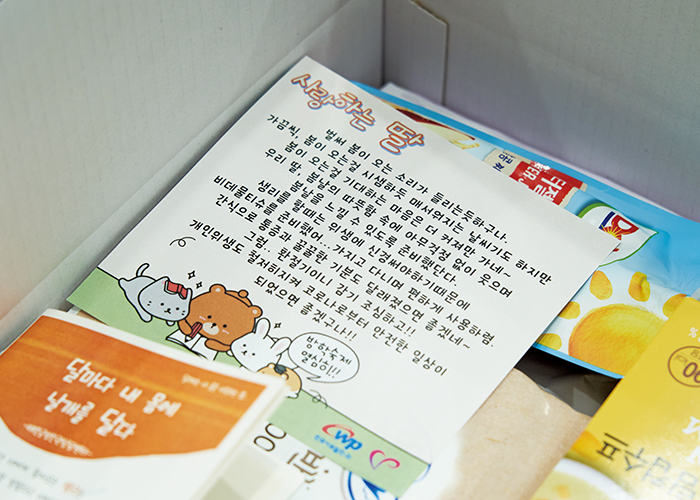 사랑하는 딸
벌써 봄이 오는 소리가 들리는듯하구나.
가끔씩, 봄이 오는걸 시샘하듯 매서워지는 날씨기도 하지만
봄이 오는걸 기대하는 마음은 더 커져만 가네~
우리 딸, 봄날의 따뜻함 속에 아무걱정 없이 웃으며
봄날을 느낄 수 있도록 준비했단다.
생리를 할때는 위생에 신경써야하기때문에
비데물티슈를 준비했어..가지고 다니며 편하게 사용하렴
간식으로 통증과 꿀꿀한 기분도 달래줬으면 좋겠네~
그럼.. 환절기이니 감기 조심하고!!
개인위생도 철저하지켜 코로나로부터 안전한 일상이
되었으면 좋겠구나!!
방학숙제
열심히!!
wp